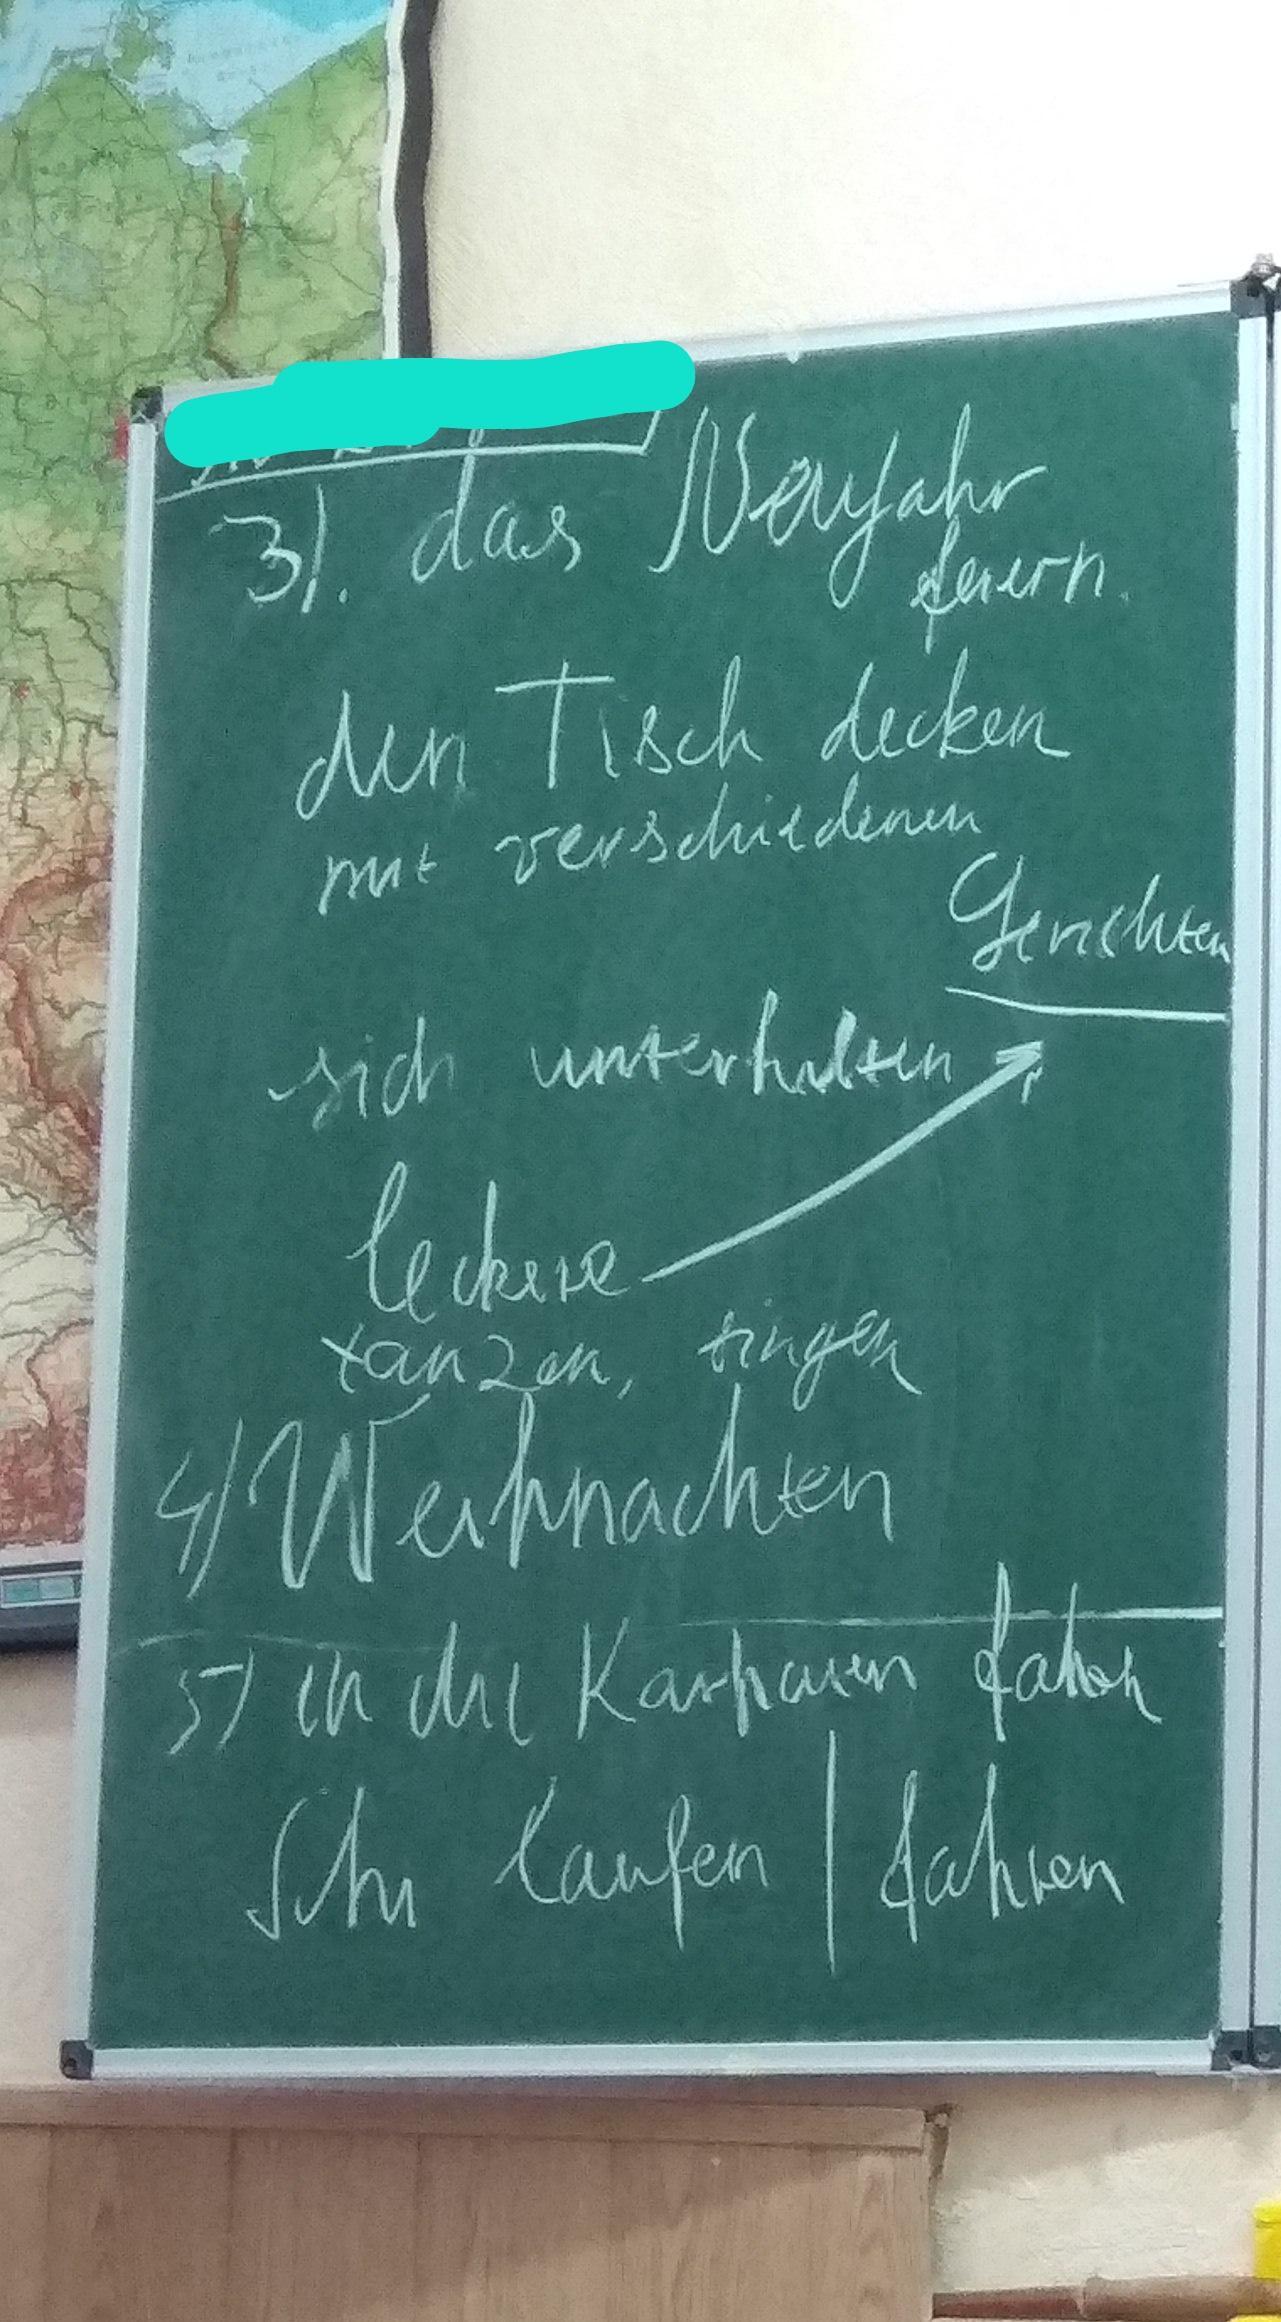 3). das Neujahr
feiern.
den Tisch decken
mit verschiedenen
Gerichten
sich unterhalten
leckere
tanzen, singen
4) Weihnachten
5) in die Karpaten fahren
Schi laufen | fahren